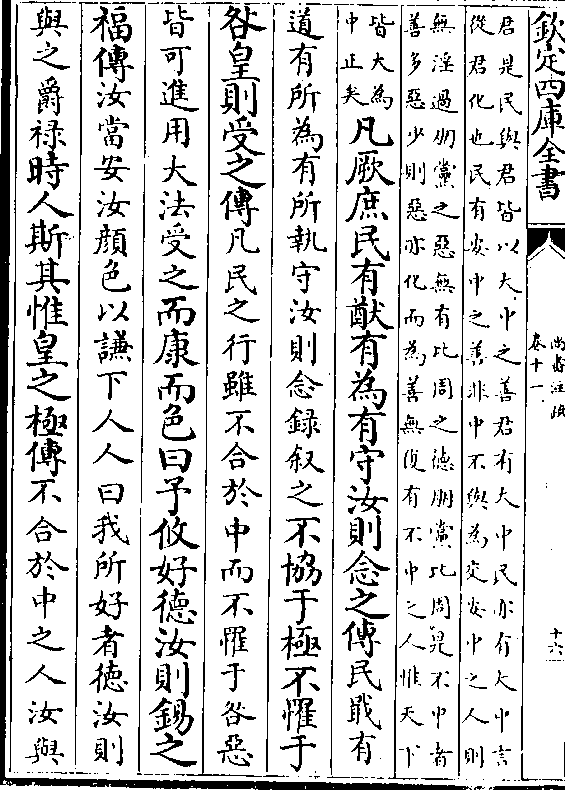 欽定四庫全書
尚書注疏
卷十一
十六
君是民與君皆以大中之善君有大中民亦有大中言
從君化也民有安中之善非中不與為交安中之人則
無淫過朋黨之惡無有比周之德朋黨比周是不中者
善多惡少則惡亦化而為善無復有不中之人惟天下
皆大為
中正矣
凡厥庶民有猷有為有守汝則念之傳民戢有
道有所為有所執守汝則念録叙之不協于極不罹于
咎皇則受之傳凡民之行雖不合於中而不罹于咎惡
皆可進用大法受之而康而色曰予攸好德汝則錫之
福傳汝當安汝顔色以謙下人人曰我所好者德汝則
與之爵禄時人斯其惟皇之極傳不合於中之人汝與